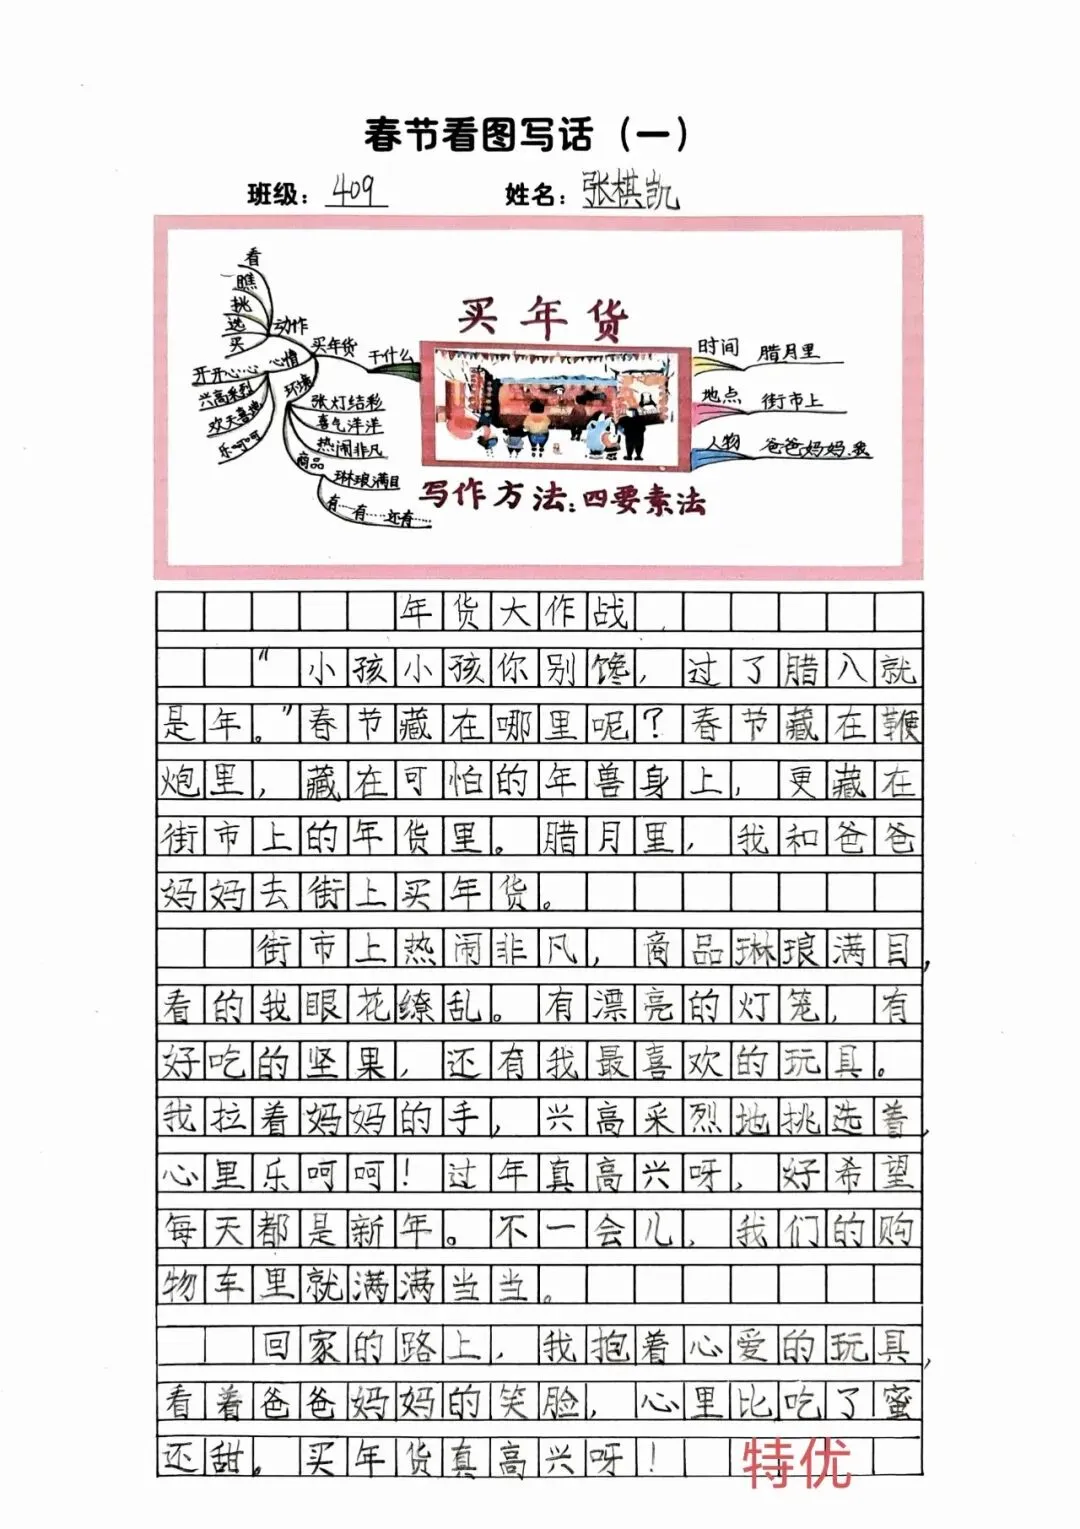 春节看图写话（一）
班级：409 姓名：张棋凯
看
瞧
挑
选
买
动作
开开心心
心情
兴高采烈
欢天喜地
乐呵呵
买年货
干什么
环境
张灯结彩
喜气洋洋
热闹非凡
商品
琳琅满目
有…有…还有…
买年货
时间 腊月里
地点 街市上
人物 爸爸妈妈.我
写作方法:四要素法
年货大作战
“小孩小孩你别馋，过了腊八就
是年。”春节藏在哪里呢？春节藏在鞭
炮里，藏在可怕的年兽身上，更藏在
街市上的年货里。腊月里，我和爸爸
妈妈去街上买年货。
街市上热闹非凡，商品琳琅满目，
看的我眼花缭乱。有漂亮的灯笼，有
好吃的坚果，还有我最喜欢的玩具。
我拉着妈妈的手，兴高采烈地挑选着，
心里乐呵呵！过年真高兴呀，好希望
每天都是新年。不一会儿，我们的购
物车里就满满当当。
回家的路上，我抱着心爱的玩具，
看着爸爸妈妈的笑脸，心里比吃了蜜
还甜。买年货真高兴呀！
特优